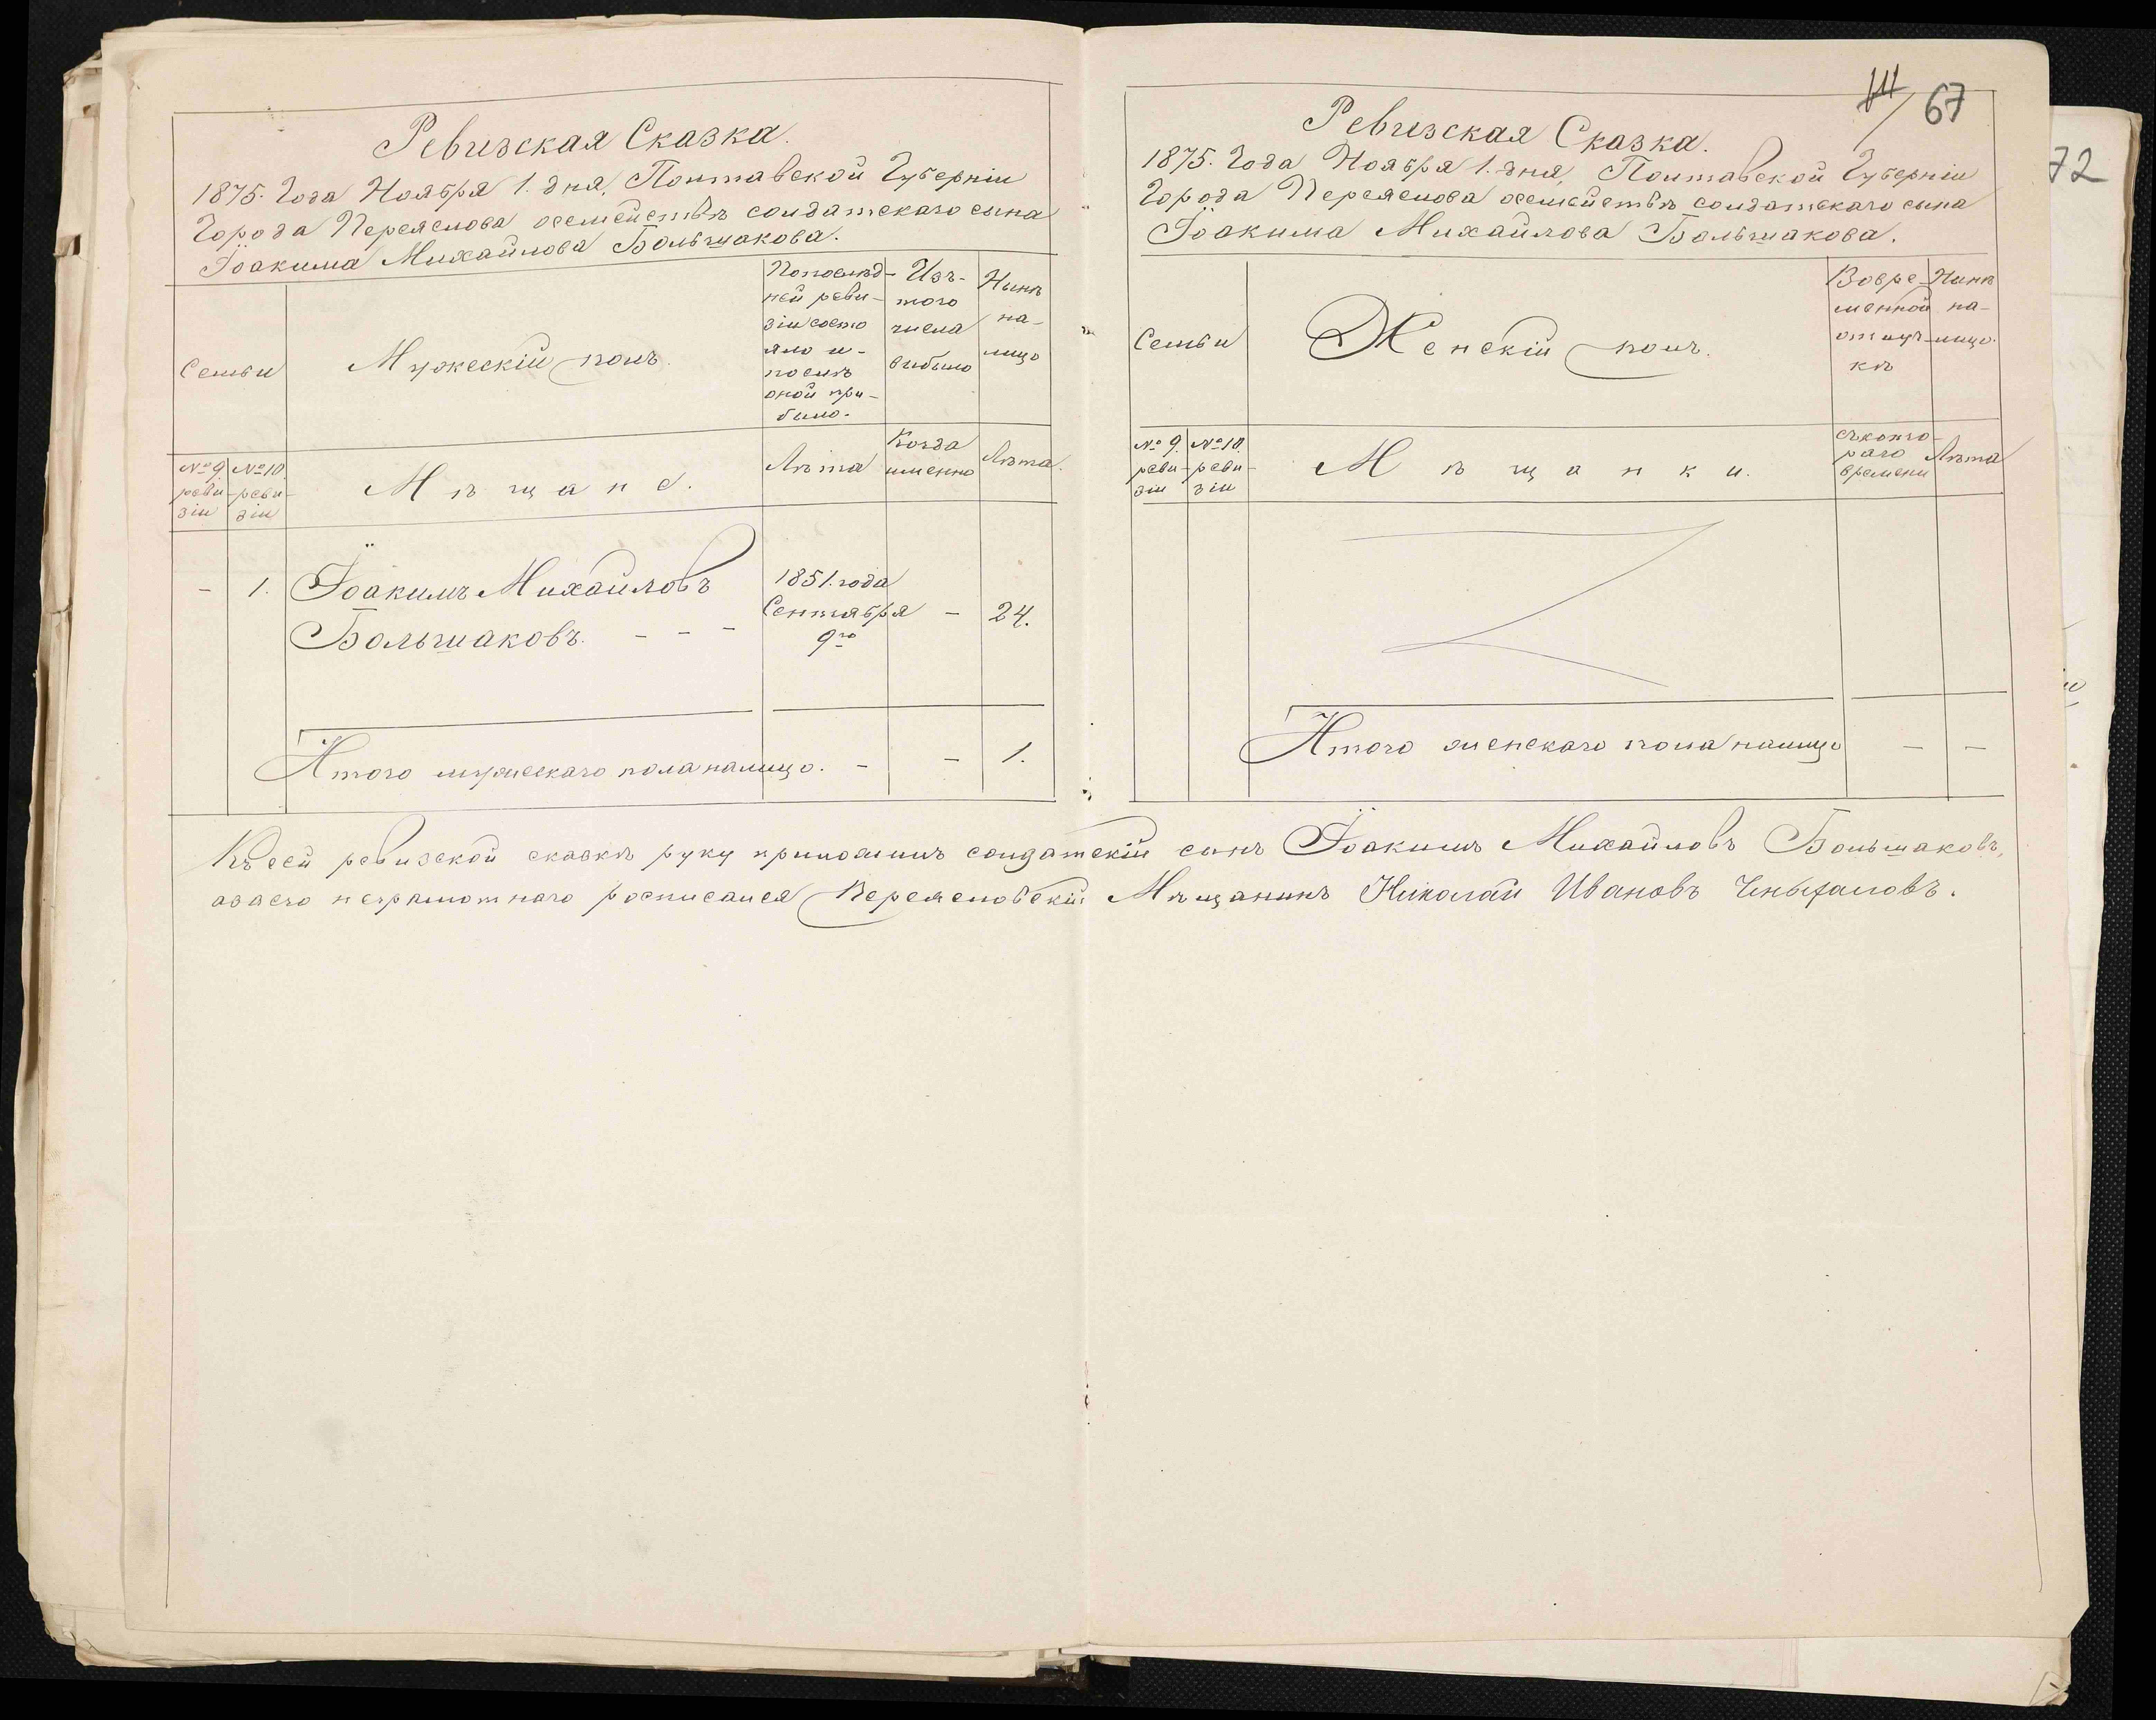 Ревизская Сказка.
1875. Года Ноября 1. дня, Полтавской Губерніи
Города Переяслова осемействѣ солдатскаго сына
Іоакима Михайлова Большакова.
Семьи
Мужескій полъ.
Попослѣд-
ней реви-
зіи состо
яло и-
послѣ
оной при-
было.
Изъ-
того
числа
выбыло
Нынѣ
на-
лицо
№ 9.
реви-
зіи
№ 10.
реви-
зіи
Мѣщане.
Лѣта
Когда
именно
Лѣта.
- 1. Іоакимъ Михайловъ
Большаковъ. - - -
1851. года
Сентября
9го
- 24.
Итого мужескаго пола налицо. - - 1.
67
Ревизская Сказка.
1875. Года Ноября 1. дня, Полтавской Губерніи
Города Переяслова осемействѣ солдатскаго сына
Іоакима Михайлова Большакова.
Семьи
Женскій полъ.
Вовре-
менной
отлуч-
кѣ
Нынѣ
на-
лицо.
№ 9.
реви-
зіи
№ 10.
реви-
зіи
Мѣщанки.
съкото-
раго
времени
Лѣта
Итого женскаго пола налицо - -
Къ сей ревизской сказкѣ руку приложилъ солдатскій сынъ Іоакимъ Михайловъ Большаковъ,
азаего неграмотнаго росписался Переясловскій Мѣщанинъ Николай Ивановъ
72